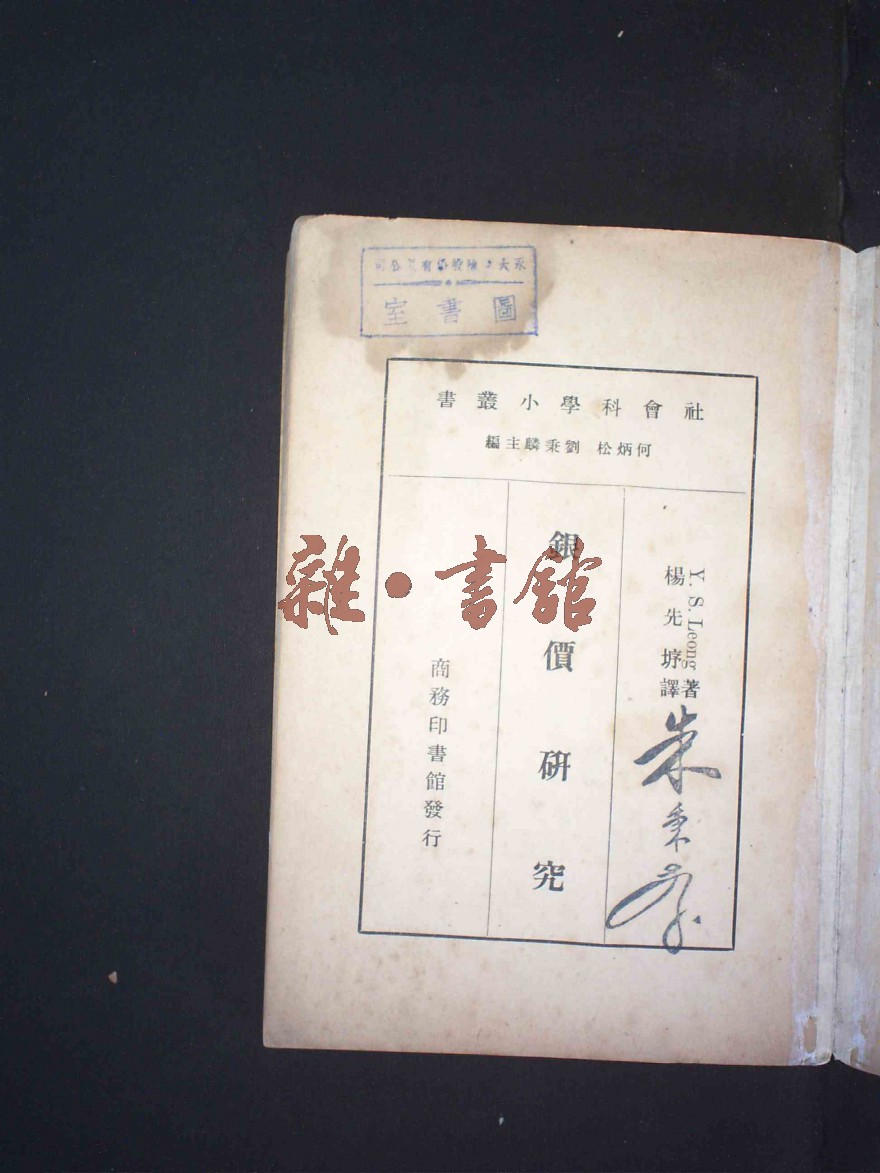 圖書室
社會科學小叢書
何炳松 劉秉麟主編
Y. S. Leong 著
楊先垿 譯
銀價研究
商務印書館發行
雜·書館